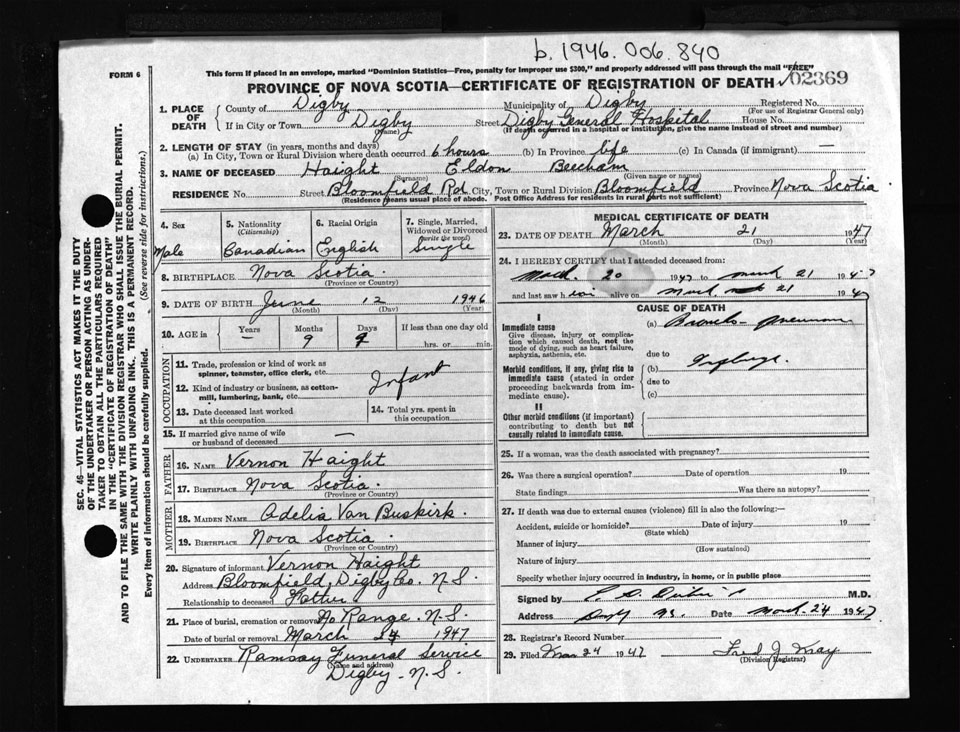 b. 1946. 006. 840
FORM 6
This form if placed in an envelope, marked "Dominion Statistics—Free, penalty for improper use $300," and properly addressed will pass through the mail "FREE"
PROVINCE OF NOVA SCOTIA—CERTIFICATE OF REGISTRATION OF DEATH 02369
1. PLACE OF DEATH
County of Digby Municipality of Digby Registered No.
(For use of Registrar General only)
If in City or Town Digby Street Digby General Hospital House No.
(Name) (If death occurred in a hospital or institution, give the name instead of street and number)
2. LENGTH OF STAY (in years, months and days)
(a) In City, Town or Rural Division where death occurred 6 hours (b) In Province life (c) In Canada (if immigrant) —
3. NAME OF DECEASED Haight Eldon Beecham
(Surname) (Given name or names)
RESIDENCE No. Street Bloomfield Rd City, Town or Rural Division Bloomfield Province Nova Scotia
(Residence means usual place of abode. Post Office Address for residents in rural parts not sufficient)
4. Sex Male
5. Nationality (Citizenship) Canadian
6. Racial Origin English
7. Single, Married, Widowed or Divorced (write the word) Single
8. BIRTHPLACE Nova Scotia
(Province or Country)
9. DATE OF BIRTH June 12 1946
(Month) (Day) (Year)
10. AGE in Years — Months 9 Days 9 If less than one day old
hrs. or min.
OCCUPATION
11. Trade, profession or kind of work as spinner, teamster, office clerk, etc.
Infant
12. Kind of industry or business, as cotton-mill, lumbering, bank, etc.
13. Date deceased last worked at this occupation
14. Total yrs. spent in this occupation
15. If married give name of wife or husband of deceased —
FATHER
16. NAME Vernon Haight
17. BIRTHPLACE Nova Scotia
(Province or Country)
MOTHER
18. MAIDEN NAME Adelia Van Buskirk
19. BIRTHPLACE Nova Scotia
(Province or Country)
20. Signature of informant Vernon Haight
Address Bloomfield, Digby Co. N.S.
Relationship to deceased Father
21. Place of burial, cremation or removal No Range. N.S.
Date of burial or removal March 24 1947
22. UNDERTAKER Ramsay Funeral Service
(Name and address)
Digby - N.S.
MEDICAL CERTIFICATE OF DEATH
23. DATE OF DEATH March 21 1947
(Month) (Day) (Year)
24. I HEREBY CERTIFY that I attended deceased from:
March 20 1947 to March 21 1947
and last saw him alive on March 21 1947
CAUSE OF DEATH
I
Immediate cause
Give disease, injury or complication which caused death, not the mode of dying, such as heart failure, asphyxia, asthenia, etc.
(a) Broncho-pneumonia
due to
Morbid conditions, if any, giving rise to immediate cause (stated in order proceeding backwards from immediate cause).
(b)
due to
(c)
II
Other morbid conditions (if important) contributing to death but not causally related to immediate cause.
25. If a woman, was the death associated with pregnancy?
26. Was there a surgical operation? Date of operation 19
State findings Was there an autopsy?
27. If death was due to external causes (violence) fill in also the following:—
Accident, suicide or homicide? Date of injury 19
(State which)
Manner of injury
(How sustained)
Nature of injury
Specify whether injury occurred in industry, in home, or in public place
Signed by M.D.
Address Digby N.S. Date March 24 1947
28. Registrar's Record Number
29. Filed Mar 24 1947 Fred J. May
(Division Registrar)
SEC. 46—VITAL STATISTICS ACT MAKES IT THE DUTY
OF THE UNDERTAKER OR PERSON ACTING AS UNDER-
TAKER TO OBTAIN ALL THE PARTICULARS REQUIRED
IN THE "CERTIFICATE OF REGISTRATION OF DEATH"
AND TO FILE THE SAME WITH THE DIVISION REGISTRAR WHO SHALL ISSUE THE BURIAL PERMIT.
WRITE PLAINLY WITH UNFADING INK. THIS IS A PERMANENT RECORD.
Every item of information should be carefully supplied. (See reverse side for instructions.)